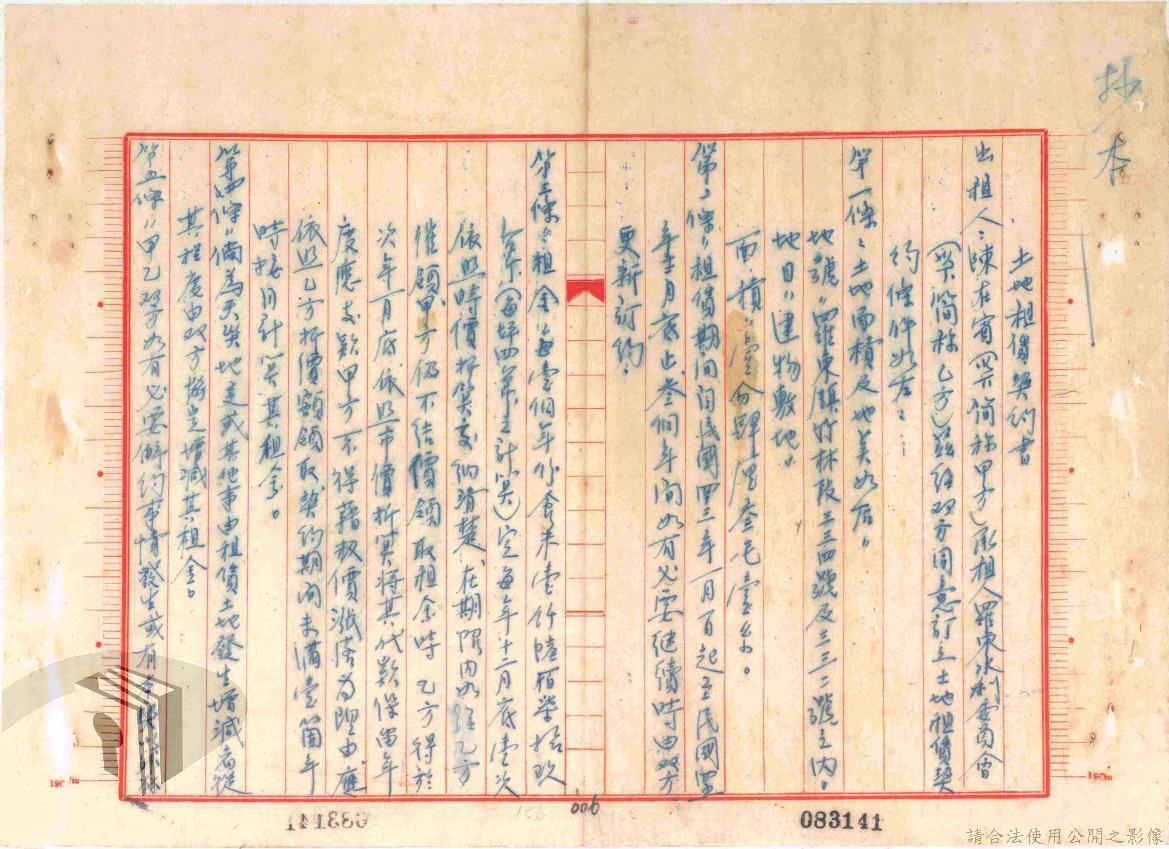 抄本
土地租賃契約書
出租人:陳在賓(以下簡称甲方)承租人羅東水利委員會
(以下簡称乙方)茲經双方同意訂立土地租賃契
約條件如左:
第一條:土地面積及地美如后。
地號:羅東鎮竹林段三三四號及三三二號之內。
地目:建物敷地。
面積:壹分肆厘叁毛壹糸。
第二條:租賃期间自民國四三年一月一日起至民國四
年 月底止叁個年间如有必要継續時由双方
更新訂約。
第三條:租金:每壹個年 食米壹仟 佰 拾玖
台斤(每坪四 計算)定每年十二月底壹次
依照時價折算交納清楚在期限內如經乙方
催領甲方仍不結價領取租金時乙方得於
次年一月底依照市價折算將其代款保留年
度應支款甲方不得藉故價漲落為理由應
依照乙方折價額領取契約期间未滿壹箇年
時按月計算其租金。
第四條:倘為天災地变或其他事由租賃土地發生增減者從
其程度由双方協定增減其租金。
第五條:甲乙双方如有必要解約事情發生或有
083141
006
156
083141
19cm
19cm
請合法使用公開之影像